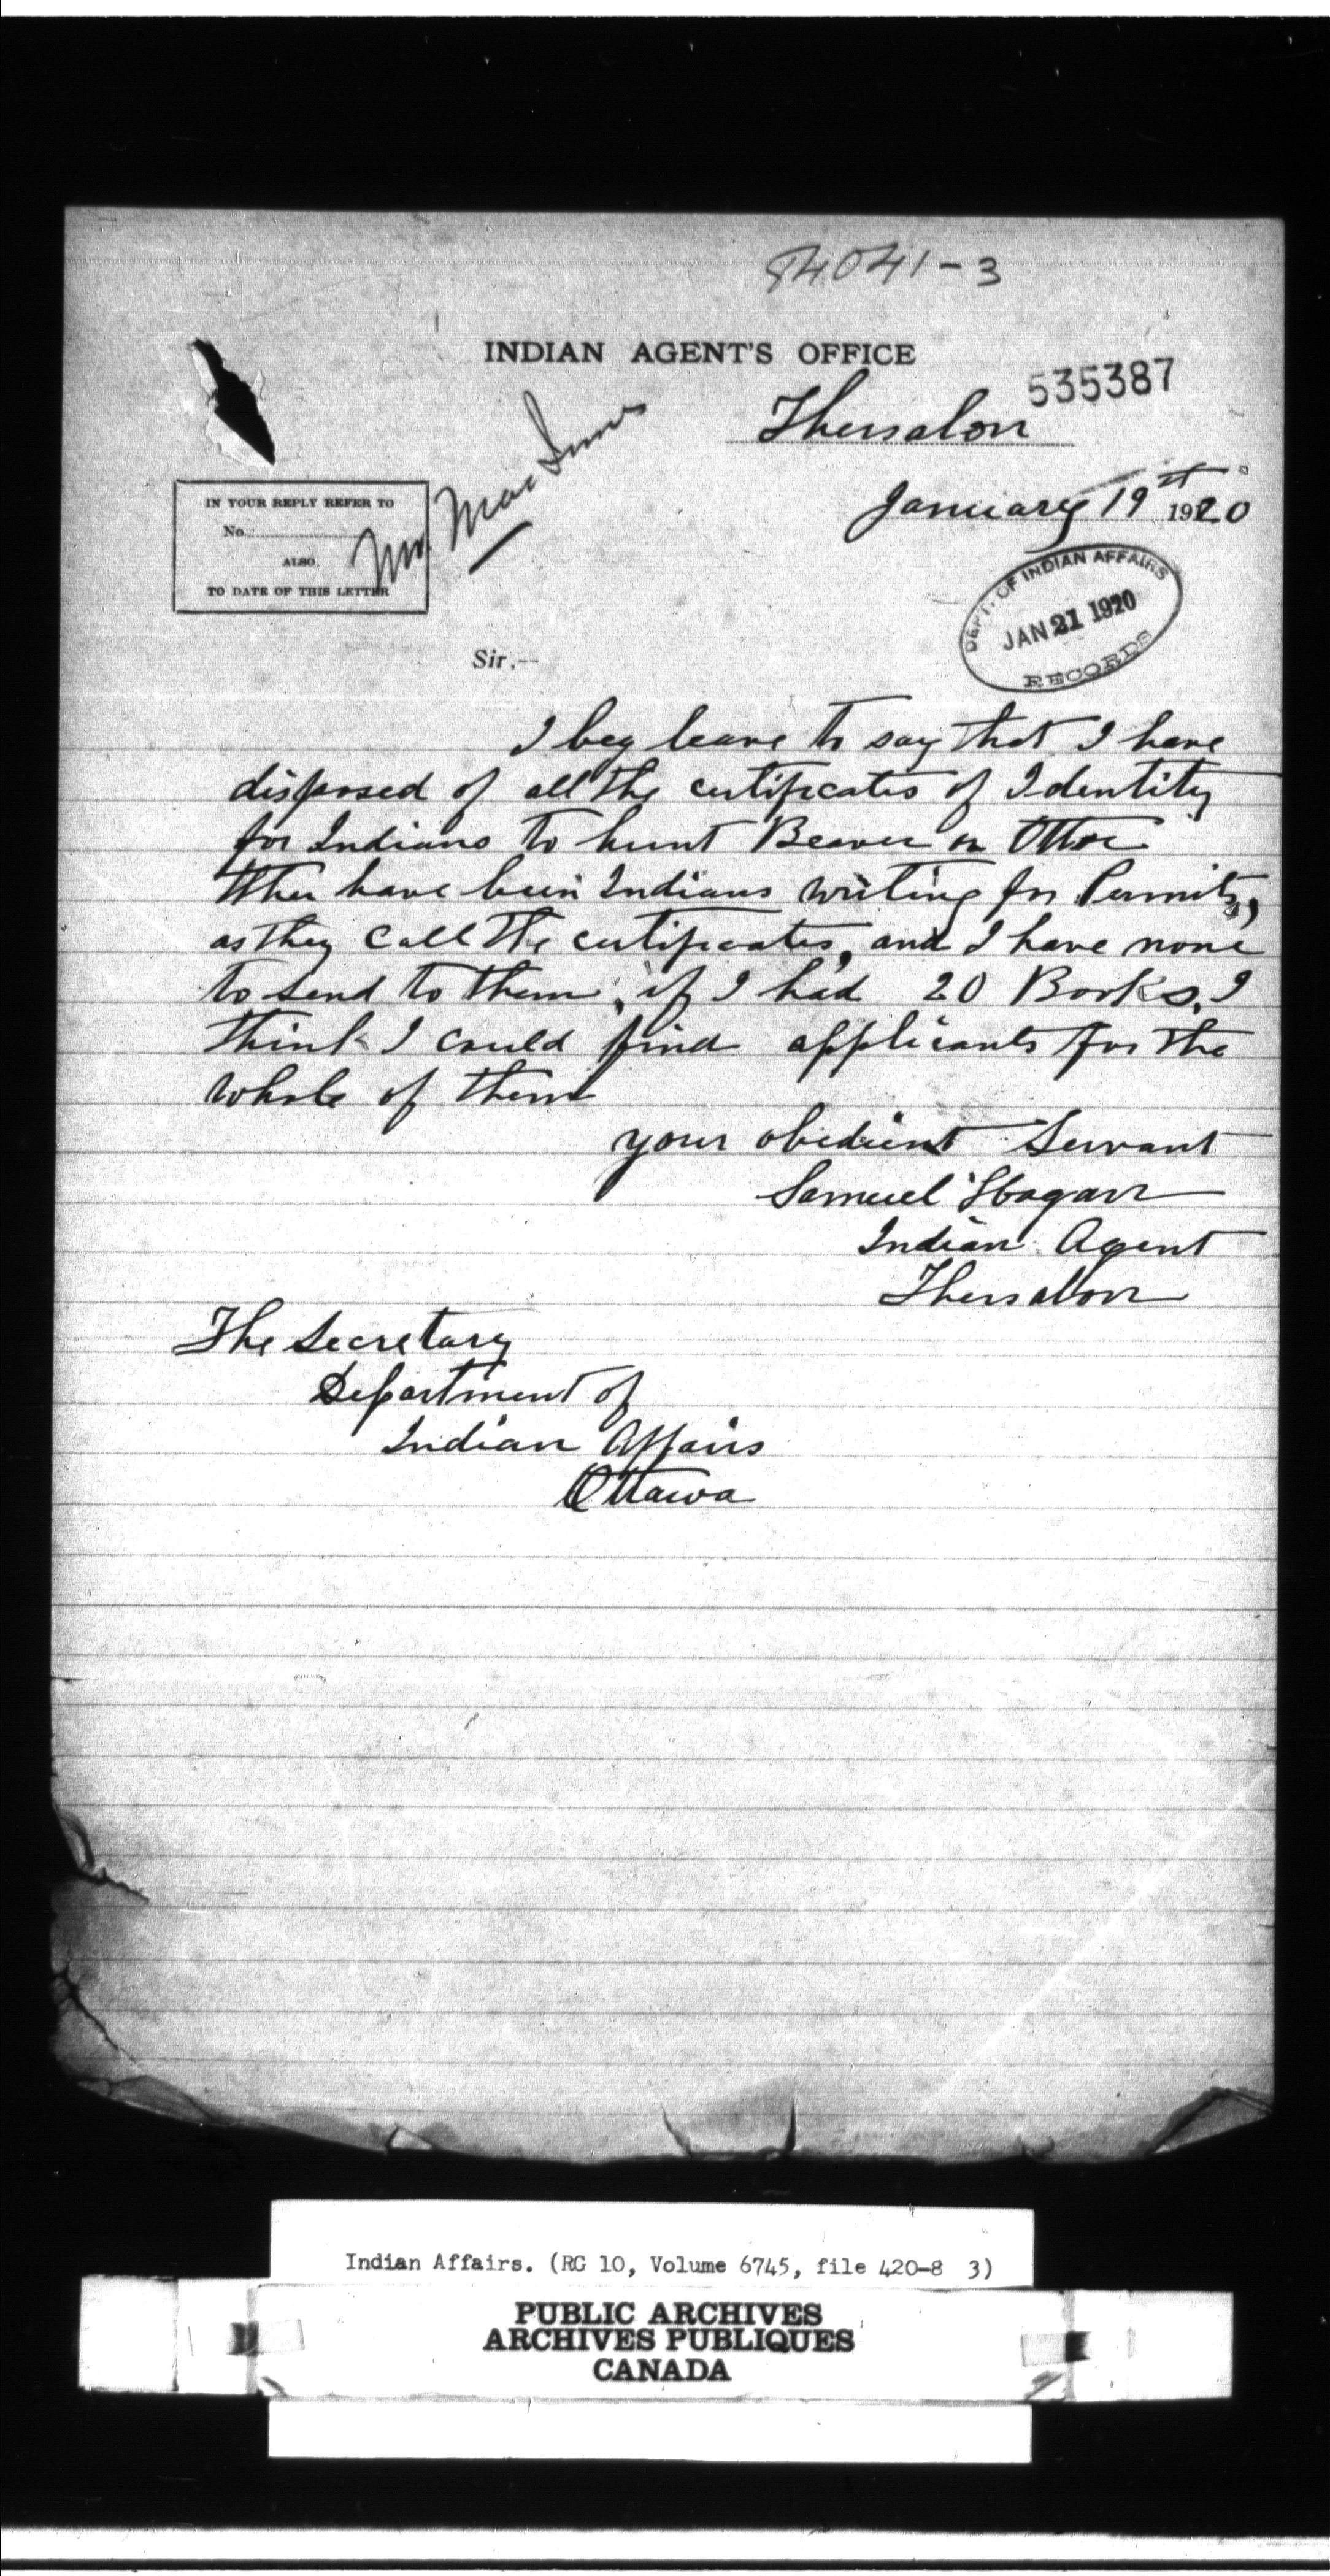 84041-3
INDIAN AGENT'S OFFICE
535387
Thessalon
January 19st 1920
IN YOUR REPLY REFER TO
No.
ALSO
TO DATE OF THIS LETTER
Mr. MacInnes
DEPT. OF INDIAN AFFAIRS
JAN 21 1920
RECORDS
Sir,—
I beg leave to say that I have
disposed of all the certificates of Identity
for Indians to hunt Beaver or Otter
ther have been Indians writing for Permits,
as they call the certificates, and I have none
to send to them, if I had 20 Books, I
think I could find applicants for the
whole of them
your obedient Servant
Samuel Hagan
Indian Agent
Thessalon
The Secretary
Department of
Indian Affairs
Ottawa
Indian Affairs. (RG 10, Volume 6745, file 420-8 3)
PUBLIC ARCHIVES
ARCHIVES PUBLIQUES
CANADA